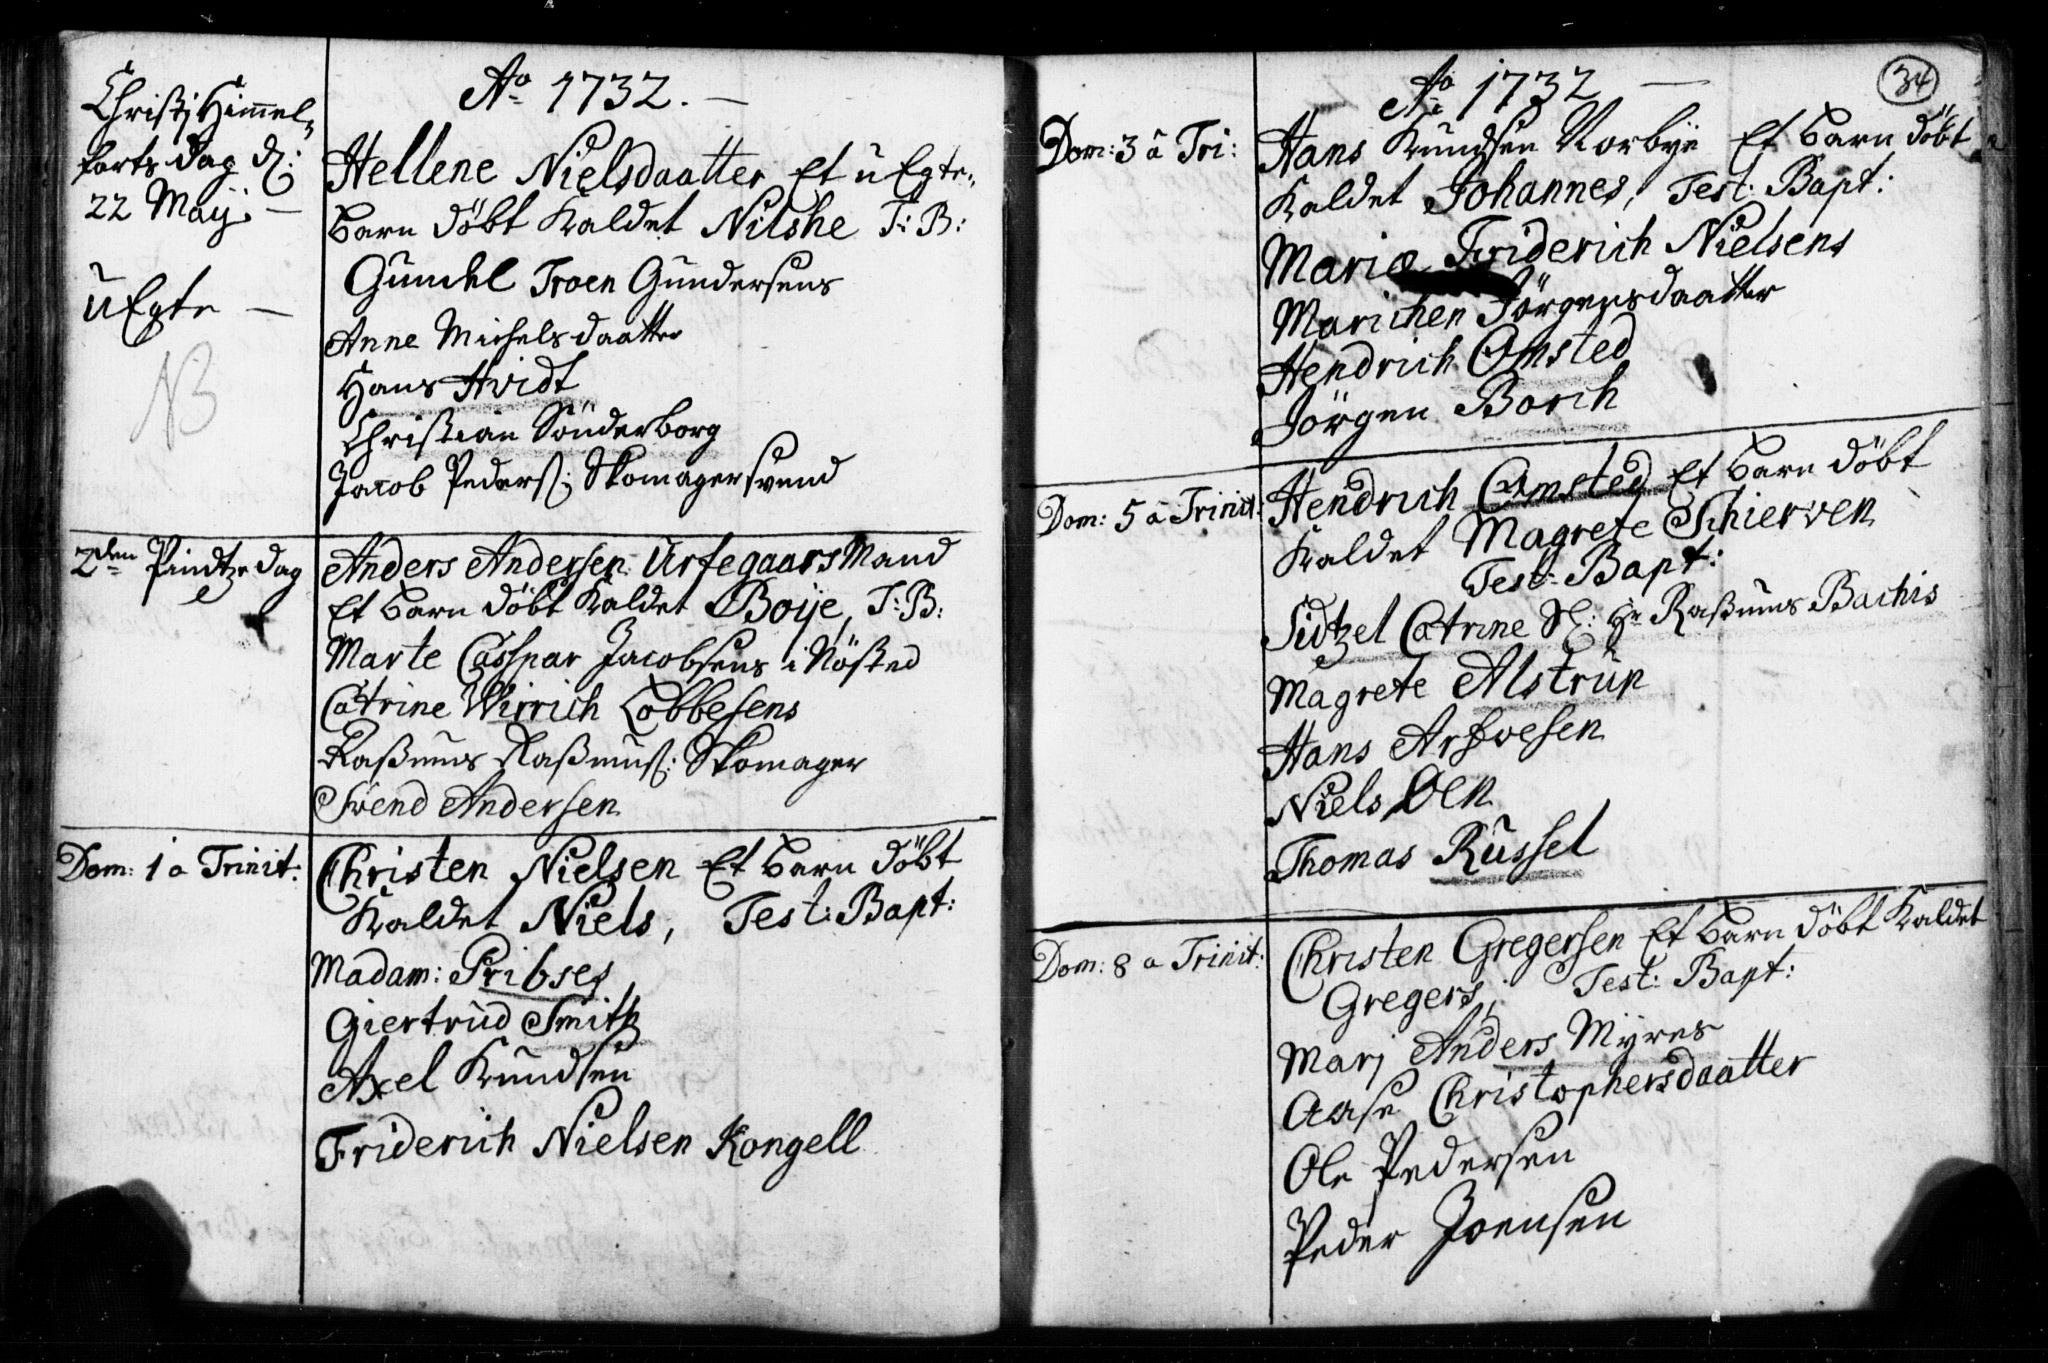 Christj Himmel-
farts dag d:
22 Maij. —
uEgte —
NB
2den Pindtze dag
Dom: 1 a Trinit:
Ao 1732. —
Hellene Nielsdaatter Et uEgte
Barn döbt Kaldet Nilshe T: B:
Gunhl Troen Gundersens
Anne Michelsdaatter
Hans Hvidt
Christian Sönderborg
Jacob Peders: Skomagersvend
Anders Andersen UrtegaarsMand
Et Barn döbt Kaldet Boije, T: B:
Marte Casspar Jacobsens i Nösted
Catrine Wirrich Lobbesens
Rasmus Rasmus: Skomager
Svend Andersen
Christen Nielsen Et Barn döbt
Kaldet Niels, Test: Bapt:
Madam: Pribses
Giertrud Smith
Axel Knudsen
Friderich Nielsen Kongell
34
Ao 1732 —
Dom: 3 a Tri:
Hans Knudsen Norbye Et Barn döbt
Kaldet Johannes, Test: Bapt:
Mariæ Friderich Nielsens
Marichen Jörgensdaatter
Hendrich Omsted
Jörgen Borch
Dom: 5 a Trinit:
Hendrich Omsted Et Barn döbt
Kaldet Magrete Schierven
Test: Bapt:
Sidtzel Catrine Sl: Hr Rasmus Bachis
Magrete Alstrup
Hans Arfvesen
Niels Oen
Thomas Russel
Dom: 8 a Trinit:
Christen Gregersen Et Barn döbt Kaldet
Gregers, Test: Bapt:
Marj Anders Myres
Aase Christophersdaatter
Ole Pedersen
Peder Joensen